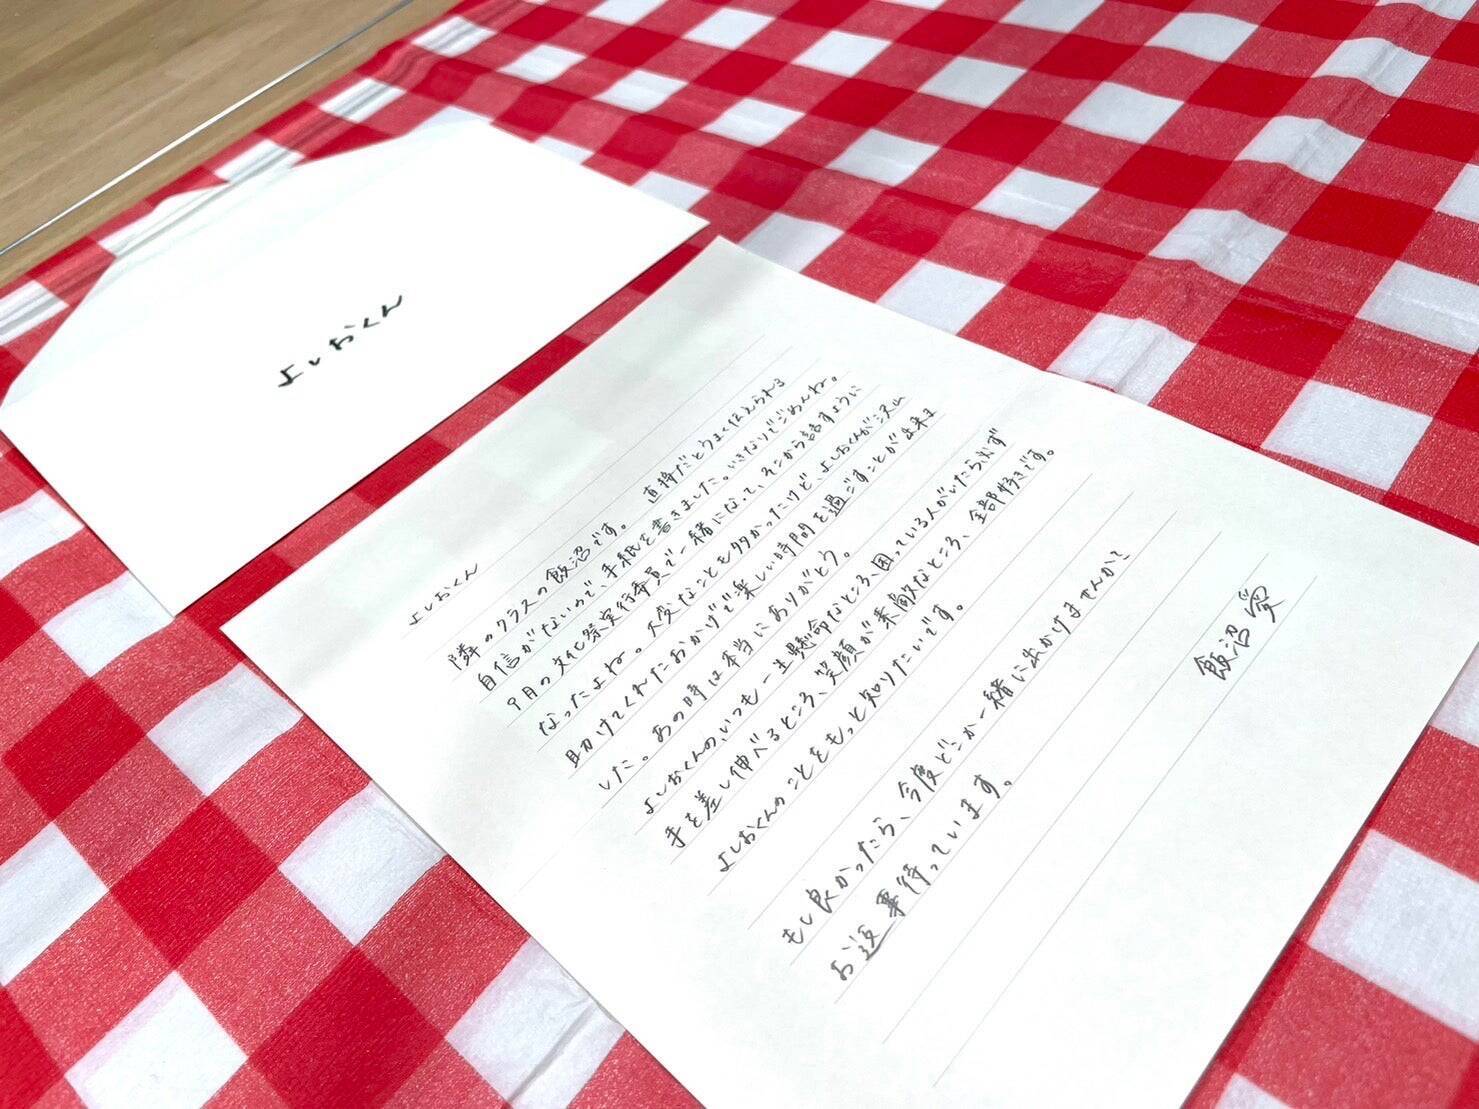 よしおくん
よしおくん
隣のクラスの飯沼です。 直接だとうまく伝えられる
自信がないので、手紙を書きました。いきなりでごめんね。
9月の文化祭実行委員で一緒になって、そこから話すように
なったよね。大変なことも多かったけど、よしおくんが沢山
助けてくれたおかげで楽しい時間を過ごすことが出来ま
した。あの時は本当にありがとう。
よしおくんの、いつも一生懸命なところ、困っている人がいたら必ず
手を差し伸べるところ、笑顔が素敵なところ、全部好きです。
よしおくんのことをもっと知りたいです。
もし良かったら、今度どこか一緒に出かけませんか?
お返事待っています。
飯沼 愛